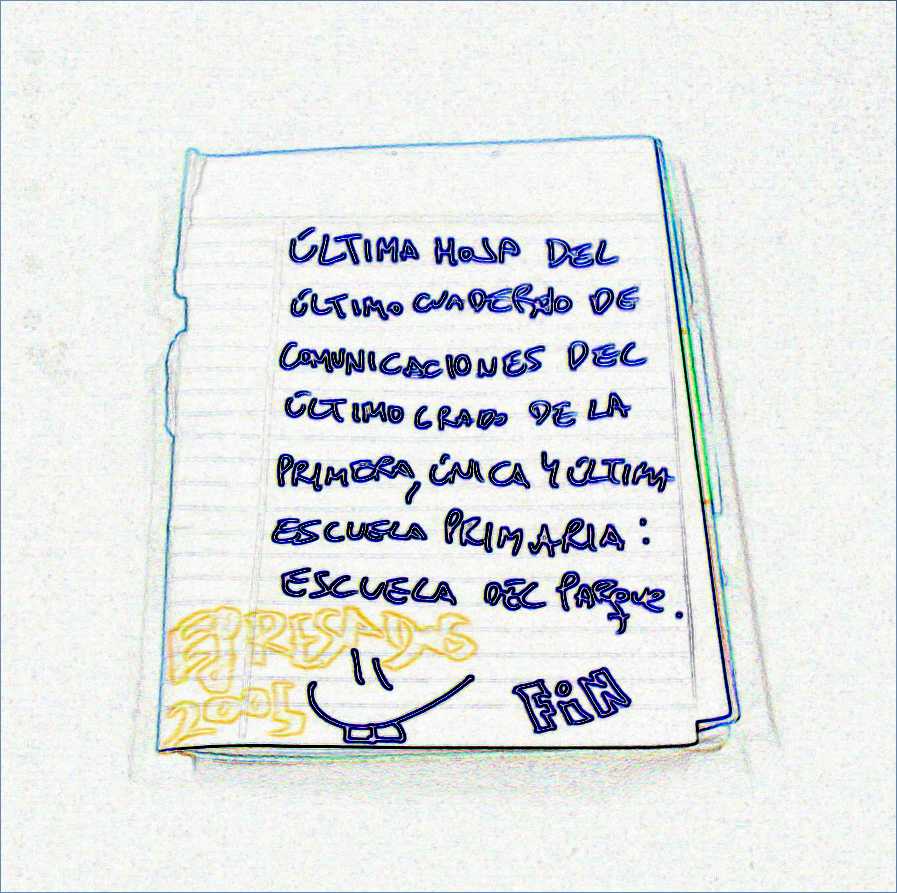 ÚLTIMA HOJA DEL
ÚLTIMO CUADERNO DE
COMUNICACIONES DEL
ÚLTIMO GRADO DE LA
PRIMERA, ÚNICA Y ÚLTIMA
ESCUELA PRIMARIA:
ESCUELA DEL PARQUE.
EGRESADOS
2005
FIN